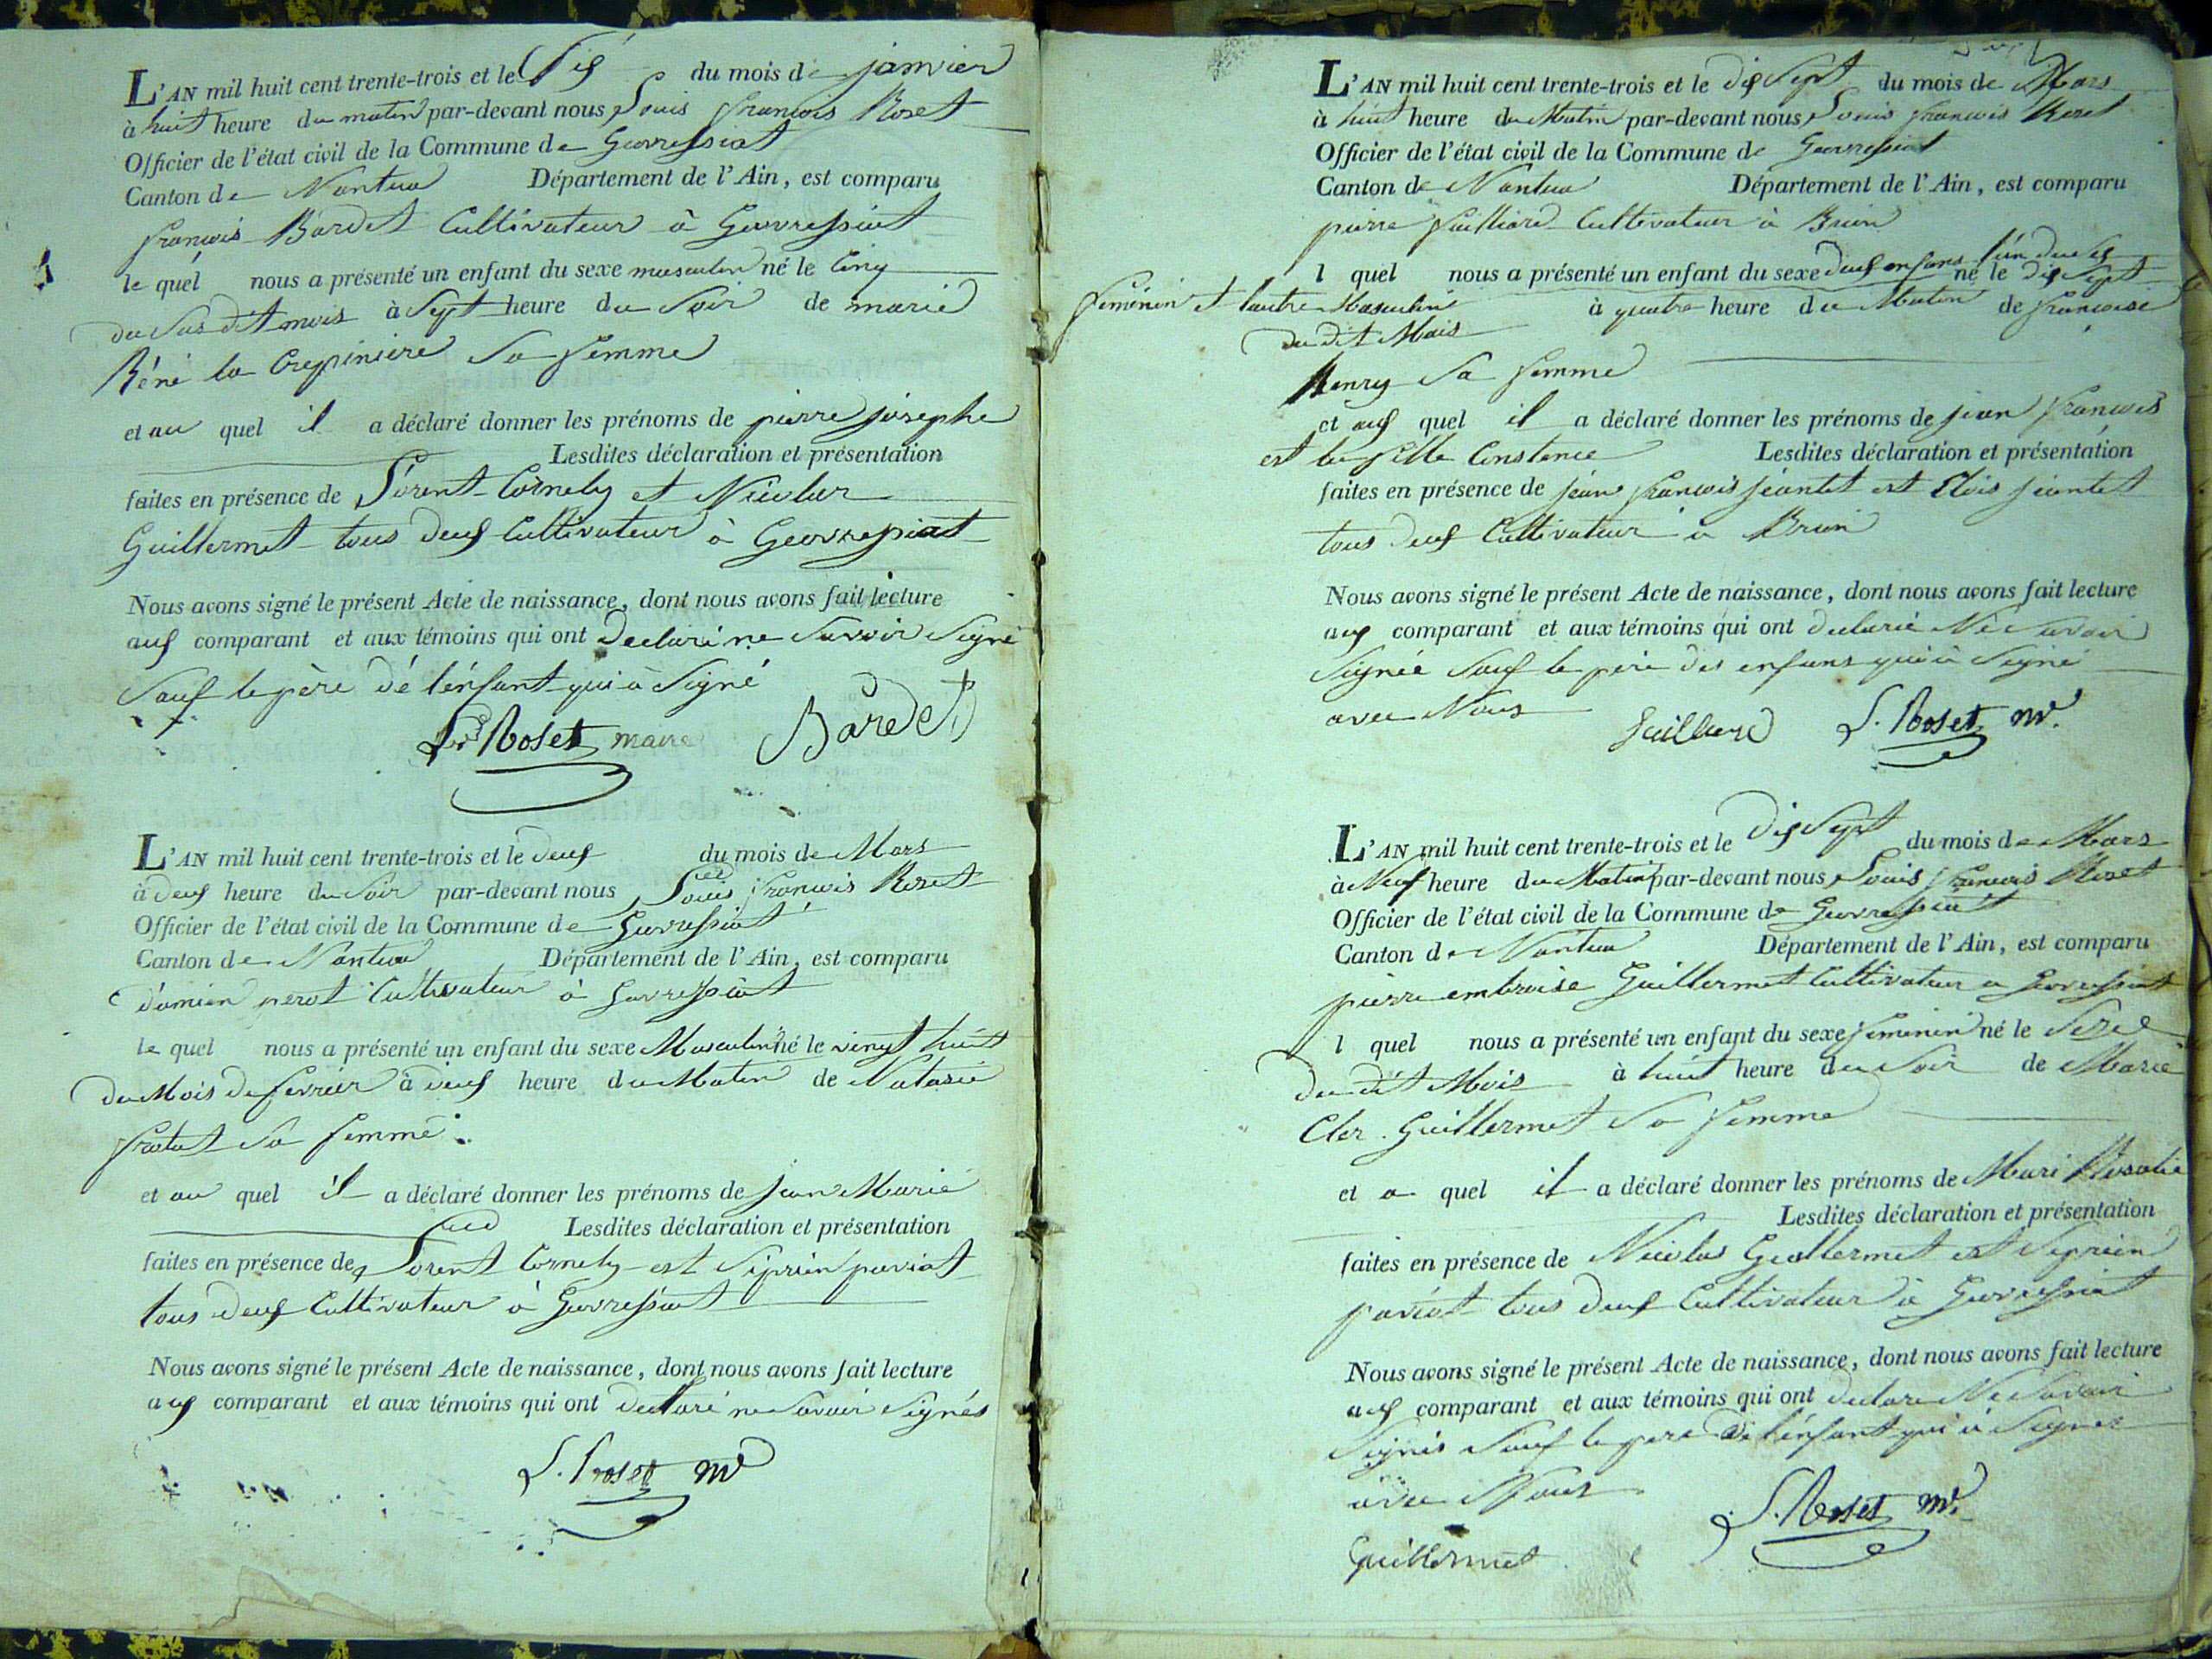 L'AN mil huit cent trente-trois et le Six du mois de janvier
à huit heure du matin par-devant nous Louis francois Roset
Officier de l'état civil de la Commune de Geovressiat
Canton de Nantua Département de l'Ain, est comparu
francois Bardet Cultivateur à Geovressiat
le quel nous a présenté un enfant du sexe masculin né le Cinq
du Sus dit mois à Sept heure du Soir de marie
Réné la Crepinière Sa femme
et au quel il a déclaré donner les prénoms de pierre josephe
Lesdites déclaration et présentation
faites en présence de Lorent Cornely et Nicolas
Guillermet tous deux Cultivateur à Geovressiat
Nous avons signé le présent Acte de naissance, dont nous avons fait lecture
aux comparant et aux témoins qui ont declaré ne Savoir Signé
Sauf le père dé l'énfant qui à Signé
Roset maire Bardet
L'AN mil huit cent trente-trois et le deux du mois de Mars
à deux heure du Soir par-devant nous Louis francois Roset
Officier de l'état civil de la Commune de Geovressiat
Canton de Nantua Département de l'Ain, est comparu
damien perot Cultivateur à Geovressiat
le quel nous a présenté un enfant du sexe Masculin né le vingt huit
du Mois de fevrier à deux heure du Matin de Natasie
frotat Sa femme
et au quel il a déclaré donner les prénoms de jean Marie
Lesdites déclaration et présentation
faites en présence de Lorent Cornely est Siprien pariat
tous deux Cultivateur à Geovressiat
Nous avons signé le présent Acte de naissance, dont nous avons fait lecture
aux comparant et aux témoins qui ont declaré ne Savoir Signés
L. Roset m
L'AN mil huit cent trente-trois et le dix Sept du mois de Mars
à huit heure du Matin par-devant nous Louis francois Roset
Officier de l'état civil de la Commune de Geovressiat
Canton de Nantua Département de l'Ain, est comparu
pierre Cultivateur à Brion
l quel nous a présenté un enfant du sexe deux enfans l'un du sex né le dix Sept
feminin et lautre Masculin à quatre heure du Matin de francoise
du dit Mois
Henry Sa femme
et aux quel il a déclaré donner les prénoms de jean francois
est la fille Constance Lesdites déclaration et présentation
faites en présence de jean francois jeantet est Elois jeantet
tous deux Cultivateur à Brion
Nous avons signé le présent Acte de naissance, dont nous avons fait lecture
aux comparant et aux témoins qui ont declaré Ne Savoir
Signée Sauf le père des enfans qui à Signé
avec Nous
L. Roset m.
L'AN mil huit cent trente-trois et le dix Sept du mois de Mars
à Neuf heure du Matin par-devant nous Louis francois Roset
Officier de l'état civil de la Commune de Geovressiat
Canton de Nantua Département de l'Ain, est comparu
pierre embroise Guillermet Cultivateur a Geovressiat
l quel nous a présenté un enfant du sexe feminin né le Seze
du dit Mois à huit heure du Soir de Marie
Cler Guillermet Sa femme
et a quel il a déclaré donner les prénoms de Mari Rosalie
Lesdites déclaration et présentation
faites en présence de Nicolas Guillermet est Siprien
pariat tous deux Cultivateur à Geovressiat
Nous avons signé le présent Acte de naissance, dont nous avons fait lecture
aux comparant et aux témoins qui ont declare Ne Savoir
Signés Sauf le pere de l'énfant qui à Signer
avec Nous
L. Roset m.
Guillermet